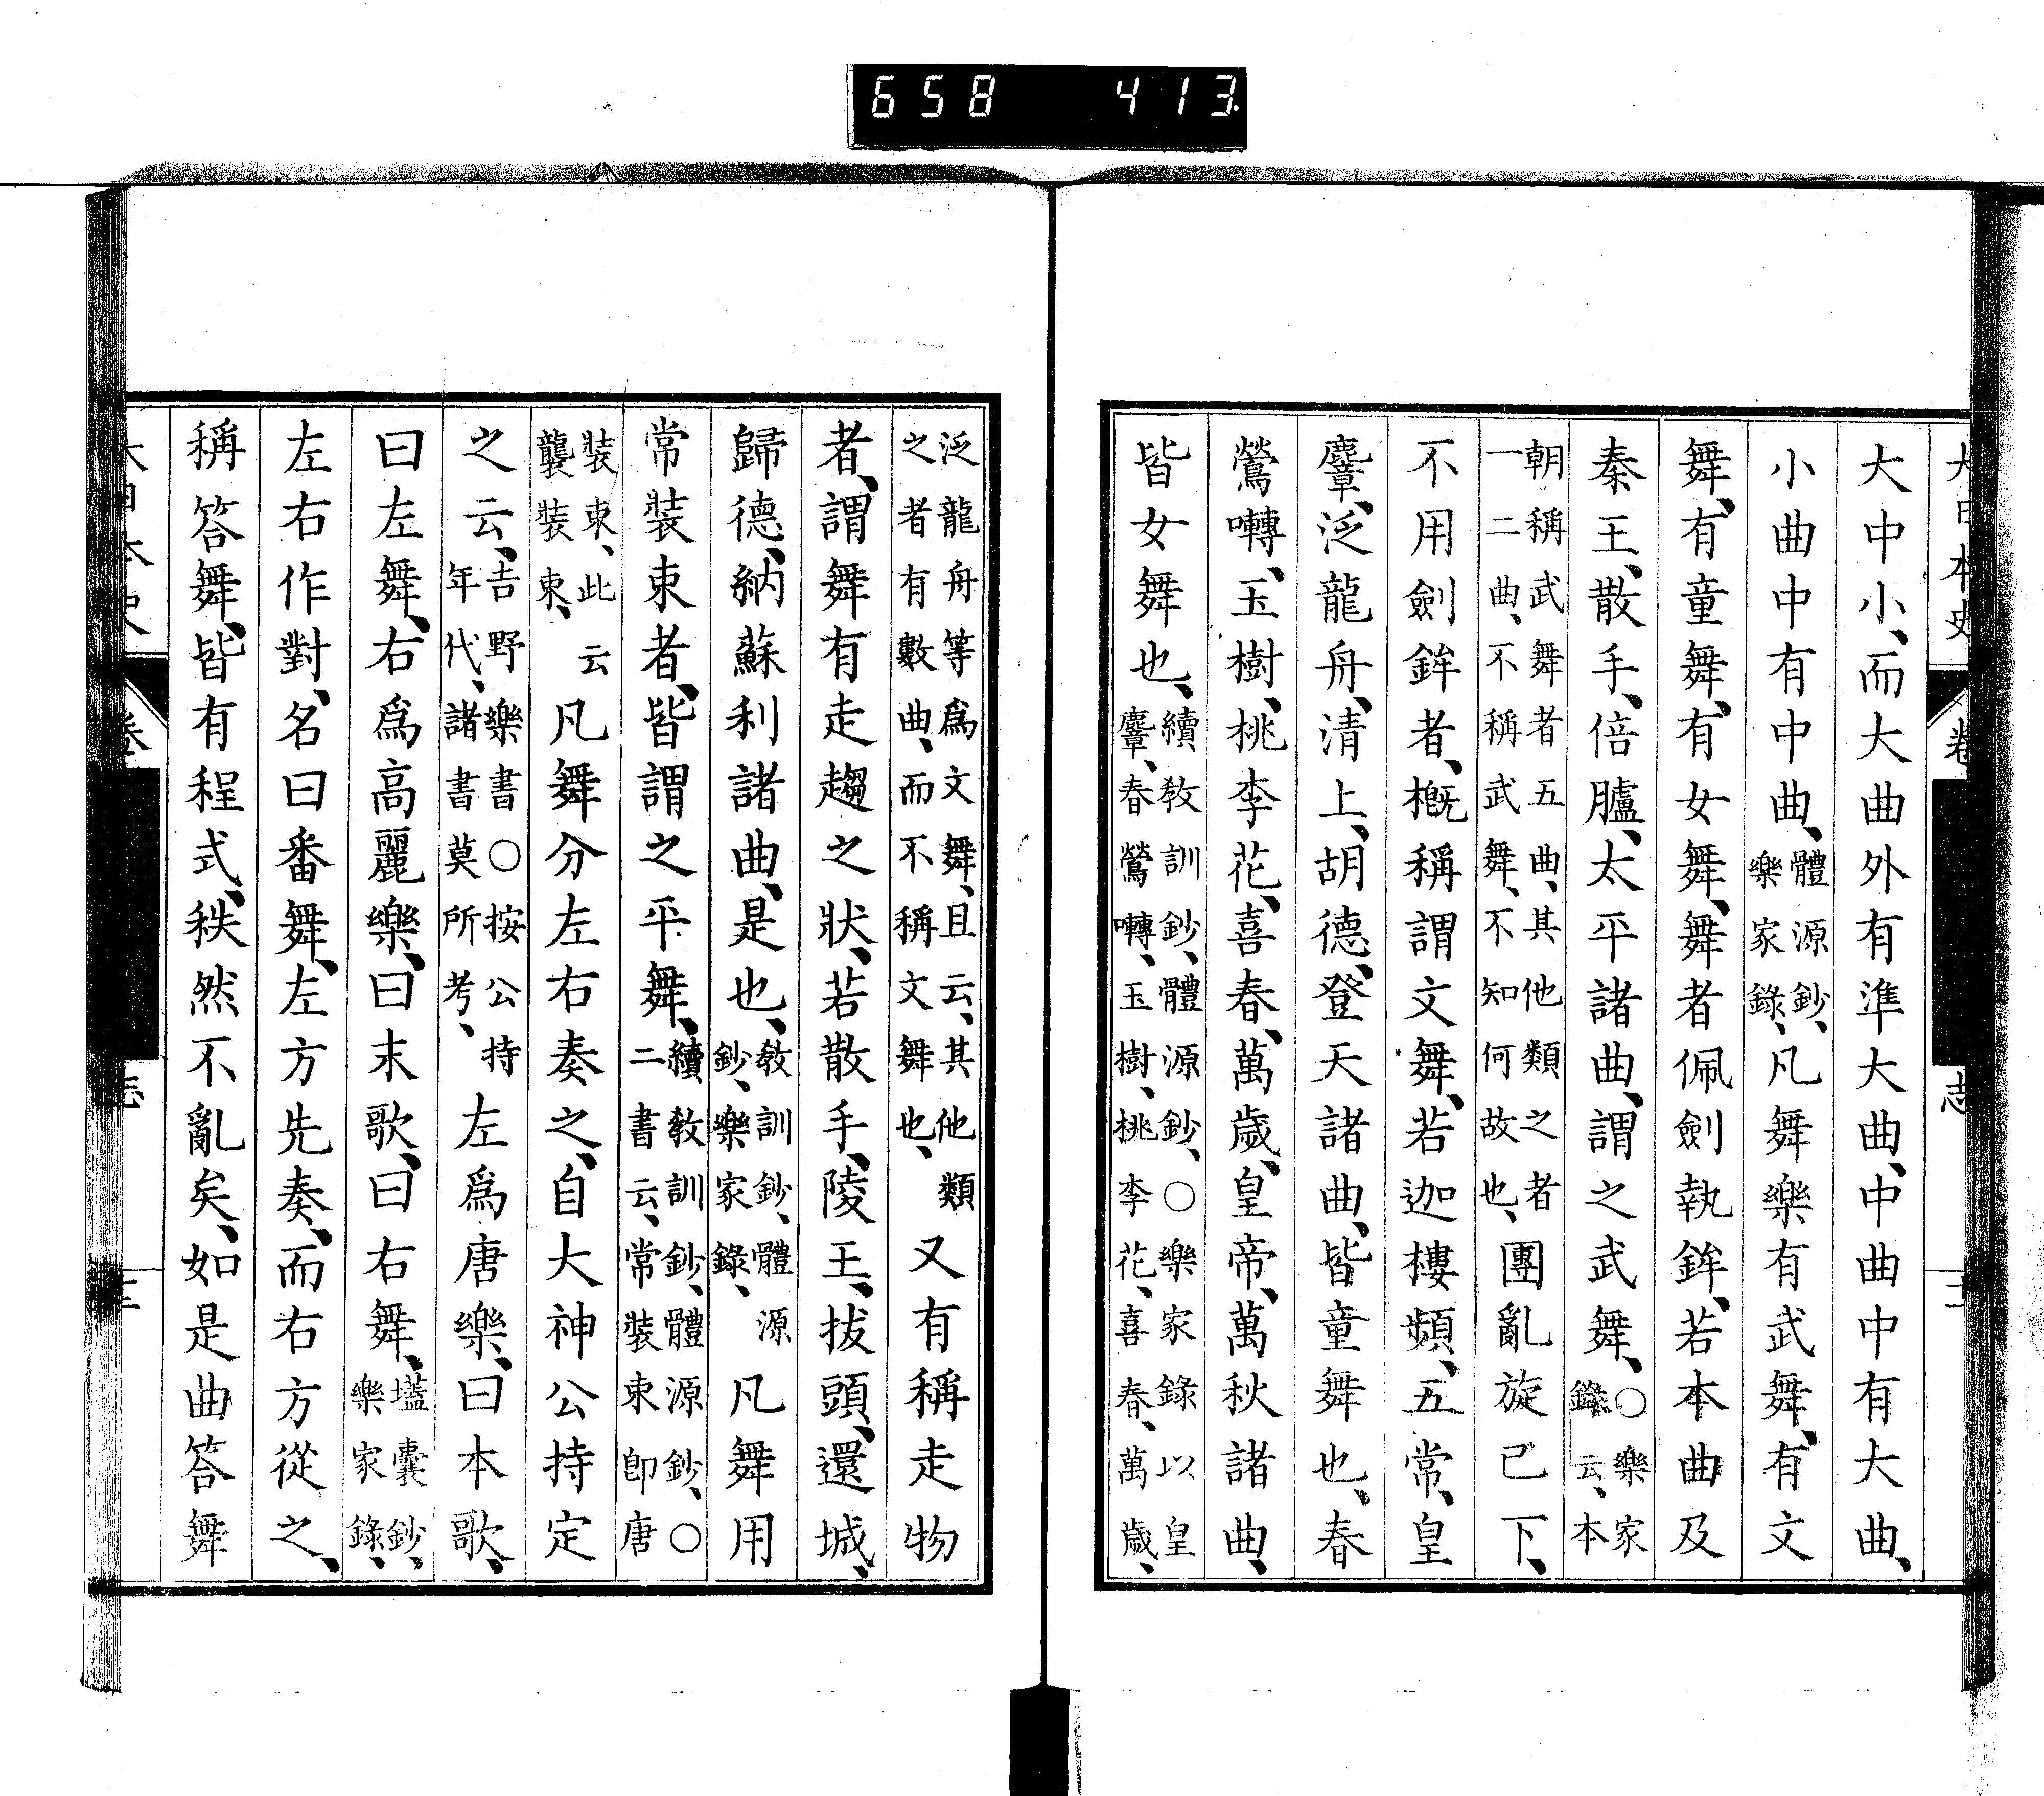 658 413.
大日本史 卷 志
大中小、而大曲外有準大曲、中曲中有大曲、
小曲中有中曲、體源鈔、樂家錄、凡舞樂有武舞、有文
舞、有童舞、有女舞、舞者佩劍執鉾、若本曲及
秦王、散手、倍臚、太平諸曲、謂之武舞、○樂家錄云、本
朝稱武舞者五曲、其他類之者一二曲、不稱武舞、不知何故也、團亂旋已下、
不用劍鉾者、概稱謂文舞、若迦樓頻、五常、皇
麞、泛龍舟、清上、胡德、登天諸曲、皆童舞也、春
鶯囀、玉樹、桃李花、喜春、萬歲、皇帝、萬秋諸曲、
皆女舞也、續教訓鈔、體源鈔、○樂家錄以皇麞、春鶯囀、玉樹、桃李花、喜春、萬歲、
泛龍舟等爲文舞、且云、其他類之者有數曲、而不稱文舞也、又有稱走物
者、謂舞有走趨之狀、若散手、陵王、拔頭、還城、
歸德、納蘇利諸曲、是也、教訓鈔、體源鈔、樂家錄、凡舞用
常裝束者、皆謂之平舞、續教訓鈔、體源鈔、○二書云、常裝束卽唐
裝束、此云襲裝束、凡舞分左右奏之、自大神公持定
之云、吉野樂書○按公持年代、諸書莫所考、左爲唐樂、曰本歌、
曰左舞、右爲高麗樂、曰末歌、曰右舞、壒囊鈔、樂家錄、
左右作對、名曰番舞、左方先奏、而右方從之、
稱答舞、皆有程式、秩然不亂矣、如是曲答舞
大日本史 卷 志